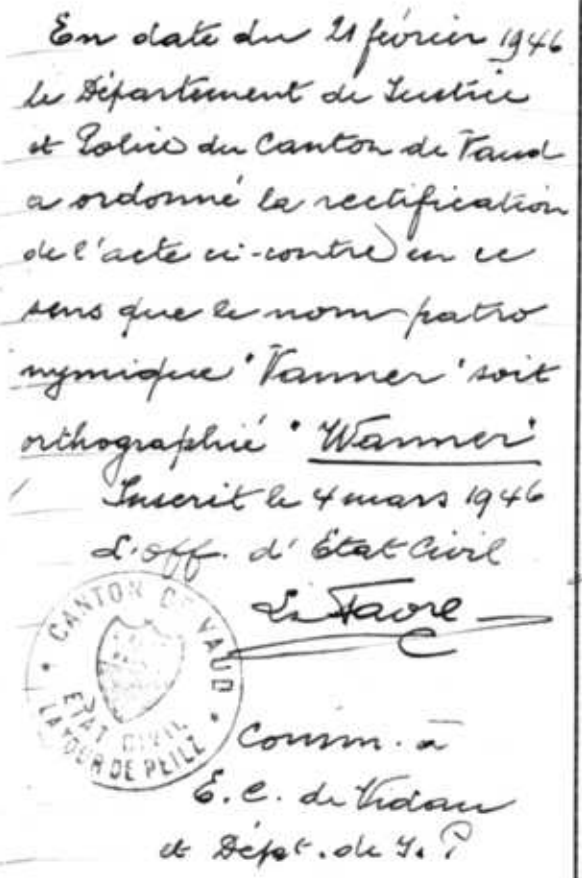 En date du 21 février 1946
le Département de Justice
et Police du Canton de Vaud
a ordonné la rectification
de l'acte ci-contre en ce
sens que le nom patro
nymique "Vanner" soit
orthographié "Wanner"
Inscrit le 4 mars 1946
L'off. d'Etat Civil
Favre
CANTON DE VAUD
ETAT CIVIL
LA TOUR DE PEILZ
Comm. à
E. C. de Vidau
et Dépt. de J. P